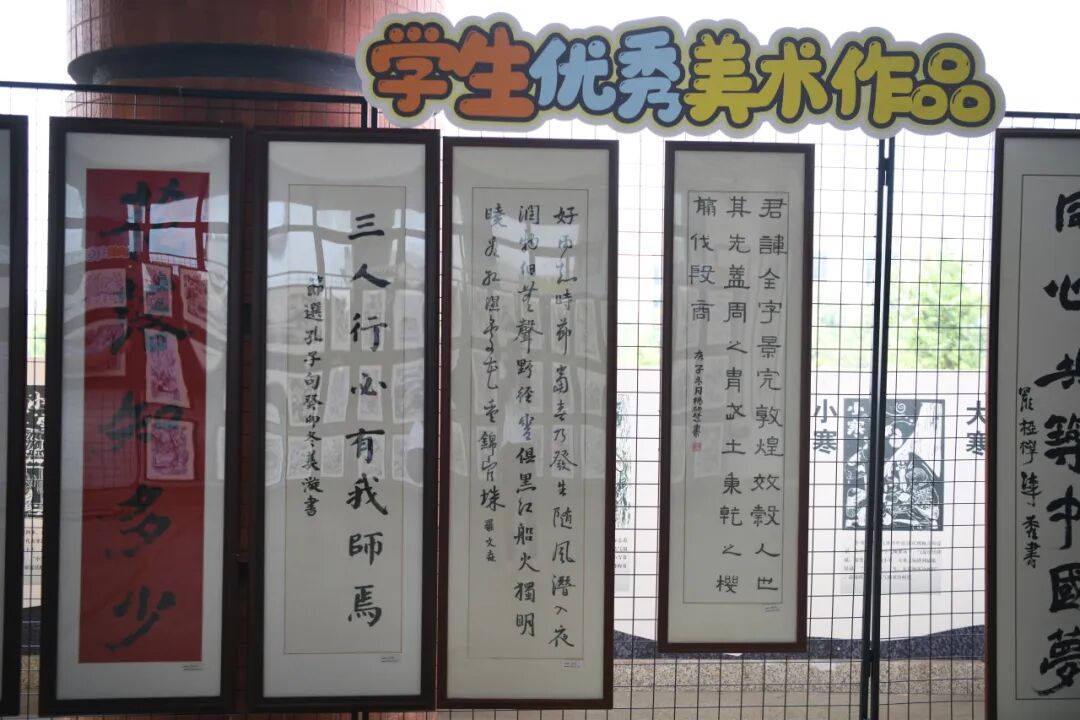 学生优秀美术作品
花落知多少
三人行必有我師焉
節選孔子句癸卯冬美漩書
好雨知時節當春乃發生随風潛入夜
潤物細無聲野徑雲俱黑江船火獨明
曉看紅濕處花重錦官城
君諱全字景完敦煌效穀人也
其先蓋周之胄武王秉乾之機
翦伐殷商
小寒
大寒
同心共築中國夢